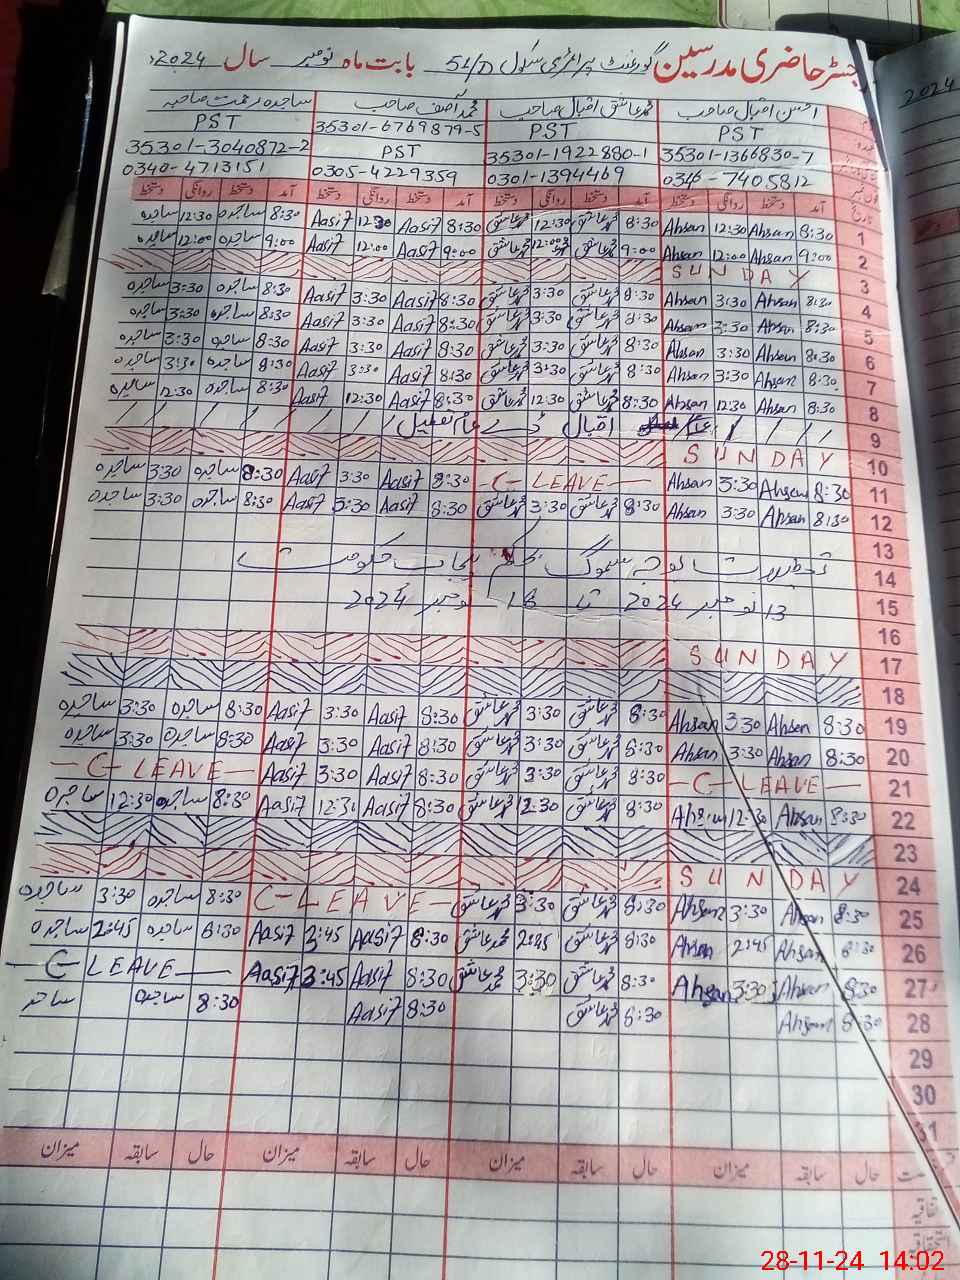 رجسٹر حاضری مدرسین گورنمنٹ پرائمری سکول 54/D بابت ماہ نومبر سال 2024ء
احسن اقبال صاحب محمد عاشق اقبال صاحب محمد آصف صاحب ساجدہ رحمت صاحبہ
PST PST 35301-6769879-5 PST
35301-1366830-7 35301-1922880-1 PST 35301-3040872-2
0346-7405812 0301-1394469 0305-4229359 0340-4713151
تاریخ آمد دستخط روانگی دستخط آمد دستخط روانگی دستخط آمد دستخط روانگی دستخط آمد دستخط روانگی دستخط
1 8:30 Ahsan 12:30 Ahsan 8:30 محمد عاشق 12:30 محمد عاشق 8:30 Aasif 12:30 Aasif 8:30 ساجدہ 12:30 ساجدہ
2 9:00 Ahsan 12:00 Ahsan 9:00 محمد عاشق 12:00 محمد عاشق 9:00 Aasif 12:00 Aasif 9:00 ساجدہ 12:00 ساجدہ
3 SUNDAY
4 8:30 Ahsan 3:30 Ahsan 8:30 محمد عاشق 3:30 محمد عاشق 8:30 Aasif 3:30 Aasif 8:30 ساجدہ 3:30 ساجدہ
5 8:30 Ahsan 3:30 Ahsan 8:30 محمد عاشق 3:30 محمد عاشق 8:30 Aasif 3:30 Aasif 8:30 ساجدہ 3:30 ساجدہ
6 8:30 Ahsan 3:30 Ahsan 8:30 محمد عاشق 3:30 محمد عاشق 8:30 Aasif 3:30 Aasif 8:30 ساجدہ 3:30 ساجدہ
7 8:30 Ahsan 3:30 Ahsan 8:30 محمد عاشق 3:30 محمد عاشق 8:30 Aasif 3:30 Aasif 8:30 ساجدہ 3:30 ساجدہ
8 8:30 Ahsan 12:30 Ahsan 8:30 محمد عاشق 12:30 محمد عاشق 8:30 Aasif 12:30 Aasif 8:30 ساجدہ 12:30 ساجدہ
9 اقبال ڈے عام تعطیل
10 SUNDAY
11 8:30 Ahsan 3:30 Ahsan -C- LEAVE- 8:30 Aasif 3:30 Aasif 8:30 ساجدہ 3:30 ساجدہ
12 8:30 Ahsan 3:30 Ahsan 8:30 محمد عاشق 3:30 محمد عاشق 8:30 Aasif 3:30 Aasif 8:30 ساجدہ 3:30 ساجدہ
13
14 تعطیلات بوجہ سموگ بحکم پنجاب حکومت
15 13 نومبر 2024 تا 18 نومبر 2024
16
17 SUNDAY
18
19 8:30 Ahsan 3:30 Ahsan 8:30 محمد عاشق 3:30 محمد عاشق 8:30 Aasif 3:30 Aasif 8:30 ساجدہ 3:30 ساجدہ
20 8:30 Ahsan 3:30 Ahsan 8:30 محمد عاشق 3:30 محمد عاشق 8:30 Aasif 3:30 Aasif 8:30 ساجدہ 3:30 ساجدہ
21 -C- LEAVE- 8:30 محمد عاشق 3:30 محمد عاشق 8:30 Aasif 3:30 Aasif -C- LEAVE-
22 8:30 Ahsan 12:30 Ahsan 8:30 محمد عاشق 12:30 محمد عاشق 8:30 Aasif 12:30 Aasif 8:30 ساجدہ 12:30 ساجدہ
23
24 SUNDAY
25 8:30 Ahsan 3:30 Ahsan 8:30 محمد عاشق 3:30 محمد عاشق C-LEAVE- 8:30 ساجدہ 3:30 ساجدہ
26 8:30 Ahsan 2:45 Ahsan 8:30 محمد عاشق 2:45 محمد عاشق 8:30 Aasif 2:45 Aasif 8:30 ساجدہ 2:45 ساجدہ
27 8:30 Ahsan 3:30 Ahsan 8:30 محمد عاشق 3:30 محمد عاشق 8:30 Aasif 3:45 Aasif C- LEAVE-
28 8:30 Ahsan 8:30 محمد عاشق 8:30 Aasif 8:30 ساجدہ
29
30
31
حال سابقہ میزان حال سابقہ میزان حال سابقہ میزان حال سابقہ میزان
اتفاقیہ
استحقاقیہ
2024
28-11-24 14:02